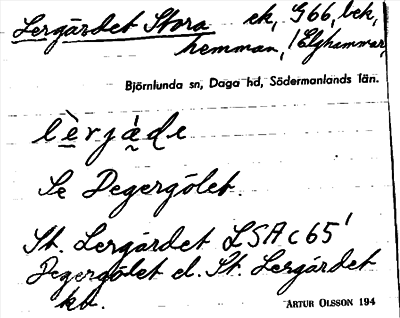 Lergärdet Stora ek, G66, bek,
hemman, /Elghammar,
Björnlunda sn, Daga hd, Södermanlands län.
lèrjáde
Se Degergölet.
St. Lergärdet LSA c65'
Degergölet el. St. Lergärdet
ka.
ARTUR OLSSON 194